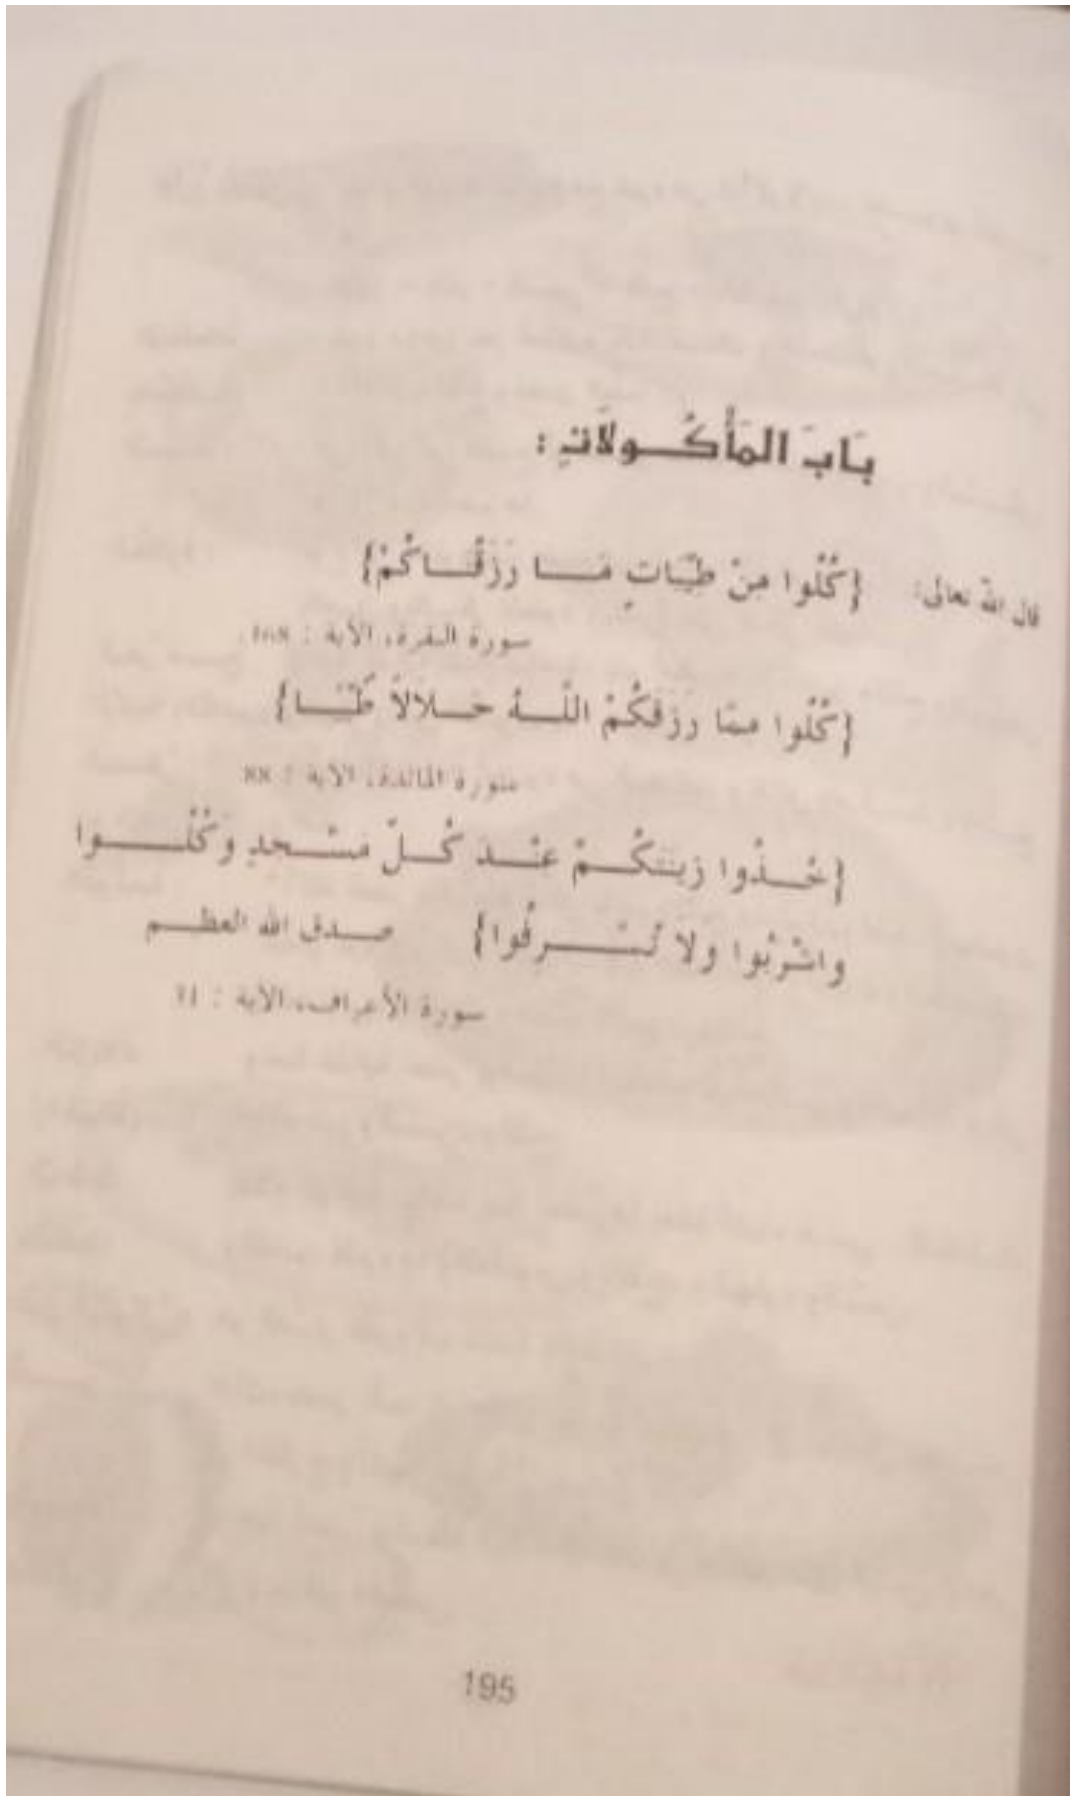 بَابَ المَأْكُولَاتِ :
قال الله تعالى: {كُلُوا مِنْ طَيِّبَاتِ مَا رَزَقْنَاكُمْ}
سورة البقرة، الآية : 168.
{كُلُوا ممَّا رَزَقَكُمْ اللَّهُ حَلاَلاً طَيِّبًا}
سورة المائدة، الآية : 88
{خُذُوا زِينَتَكُمْ عِنْدَ كُلِّ مَسْجِدٍ وَكُلُوا
واشْرَبُوا ولاَ تُسْرِفُوا} صدق الله العظيم
سورة الأعراف، الآية : 31
195